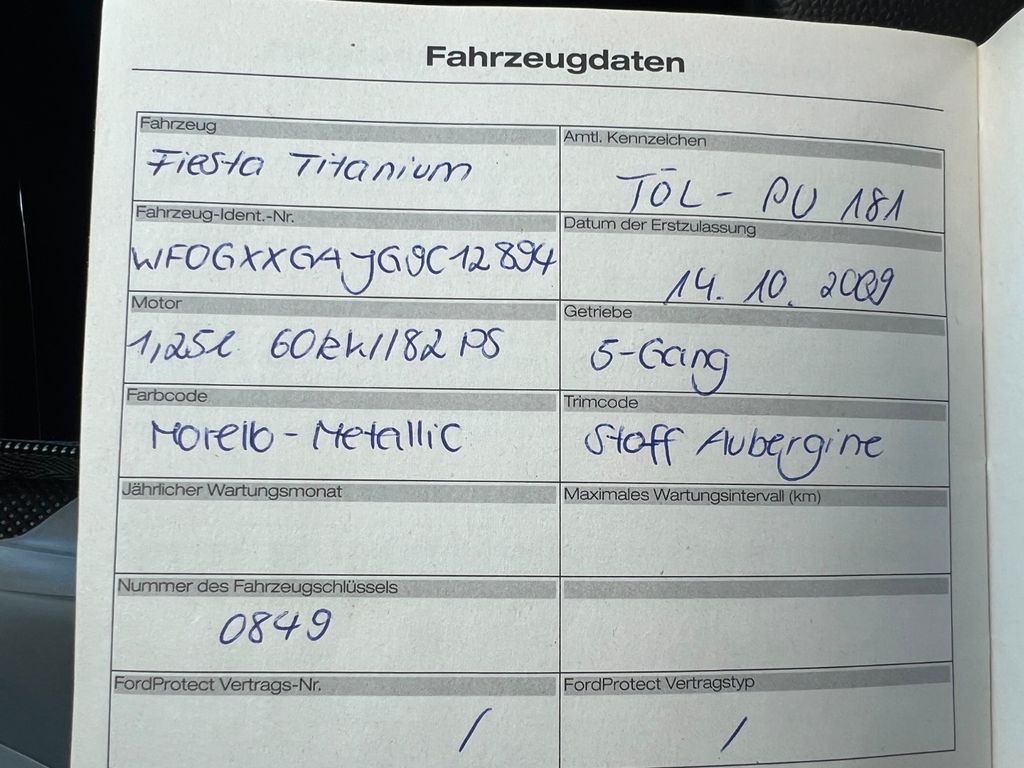 Fahrzeugdaten
Fahrzeug
Fiesta Titanium
Amtl. Kennzeichen
TÖL - PU 181
Fahrzeug-Ident.-Nr.
WF0GXXGAJG9C12894
Datum der Erstzulassung
14. 10. 2009
Motor
1,25l 60kW/82 PS
Getriebe
5-Gang
Farbcode
Morello-Metallic
Trimcode
Stoff Aubergine
Jährlicher Wartungsmonat
Maximales Wartungsintervall (km)
Nummer des Fahrzeugschlüssels
0849
FordProtect Vertrags-Nr.
/
FordProtect Vertragstyp
/